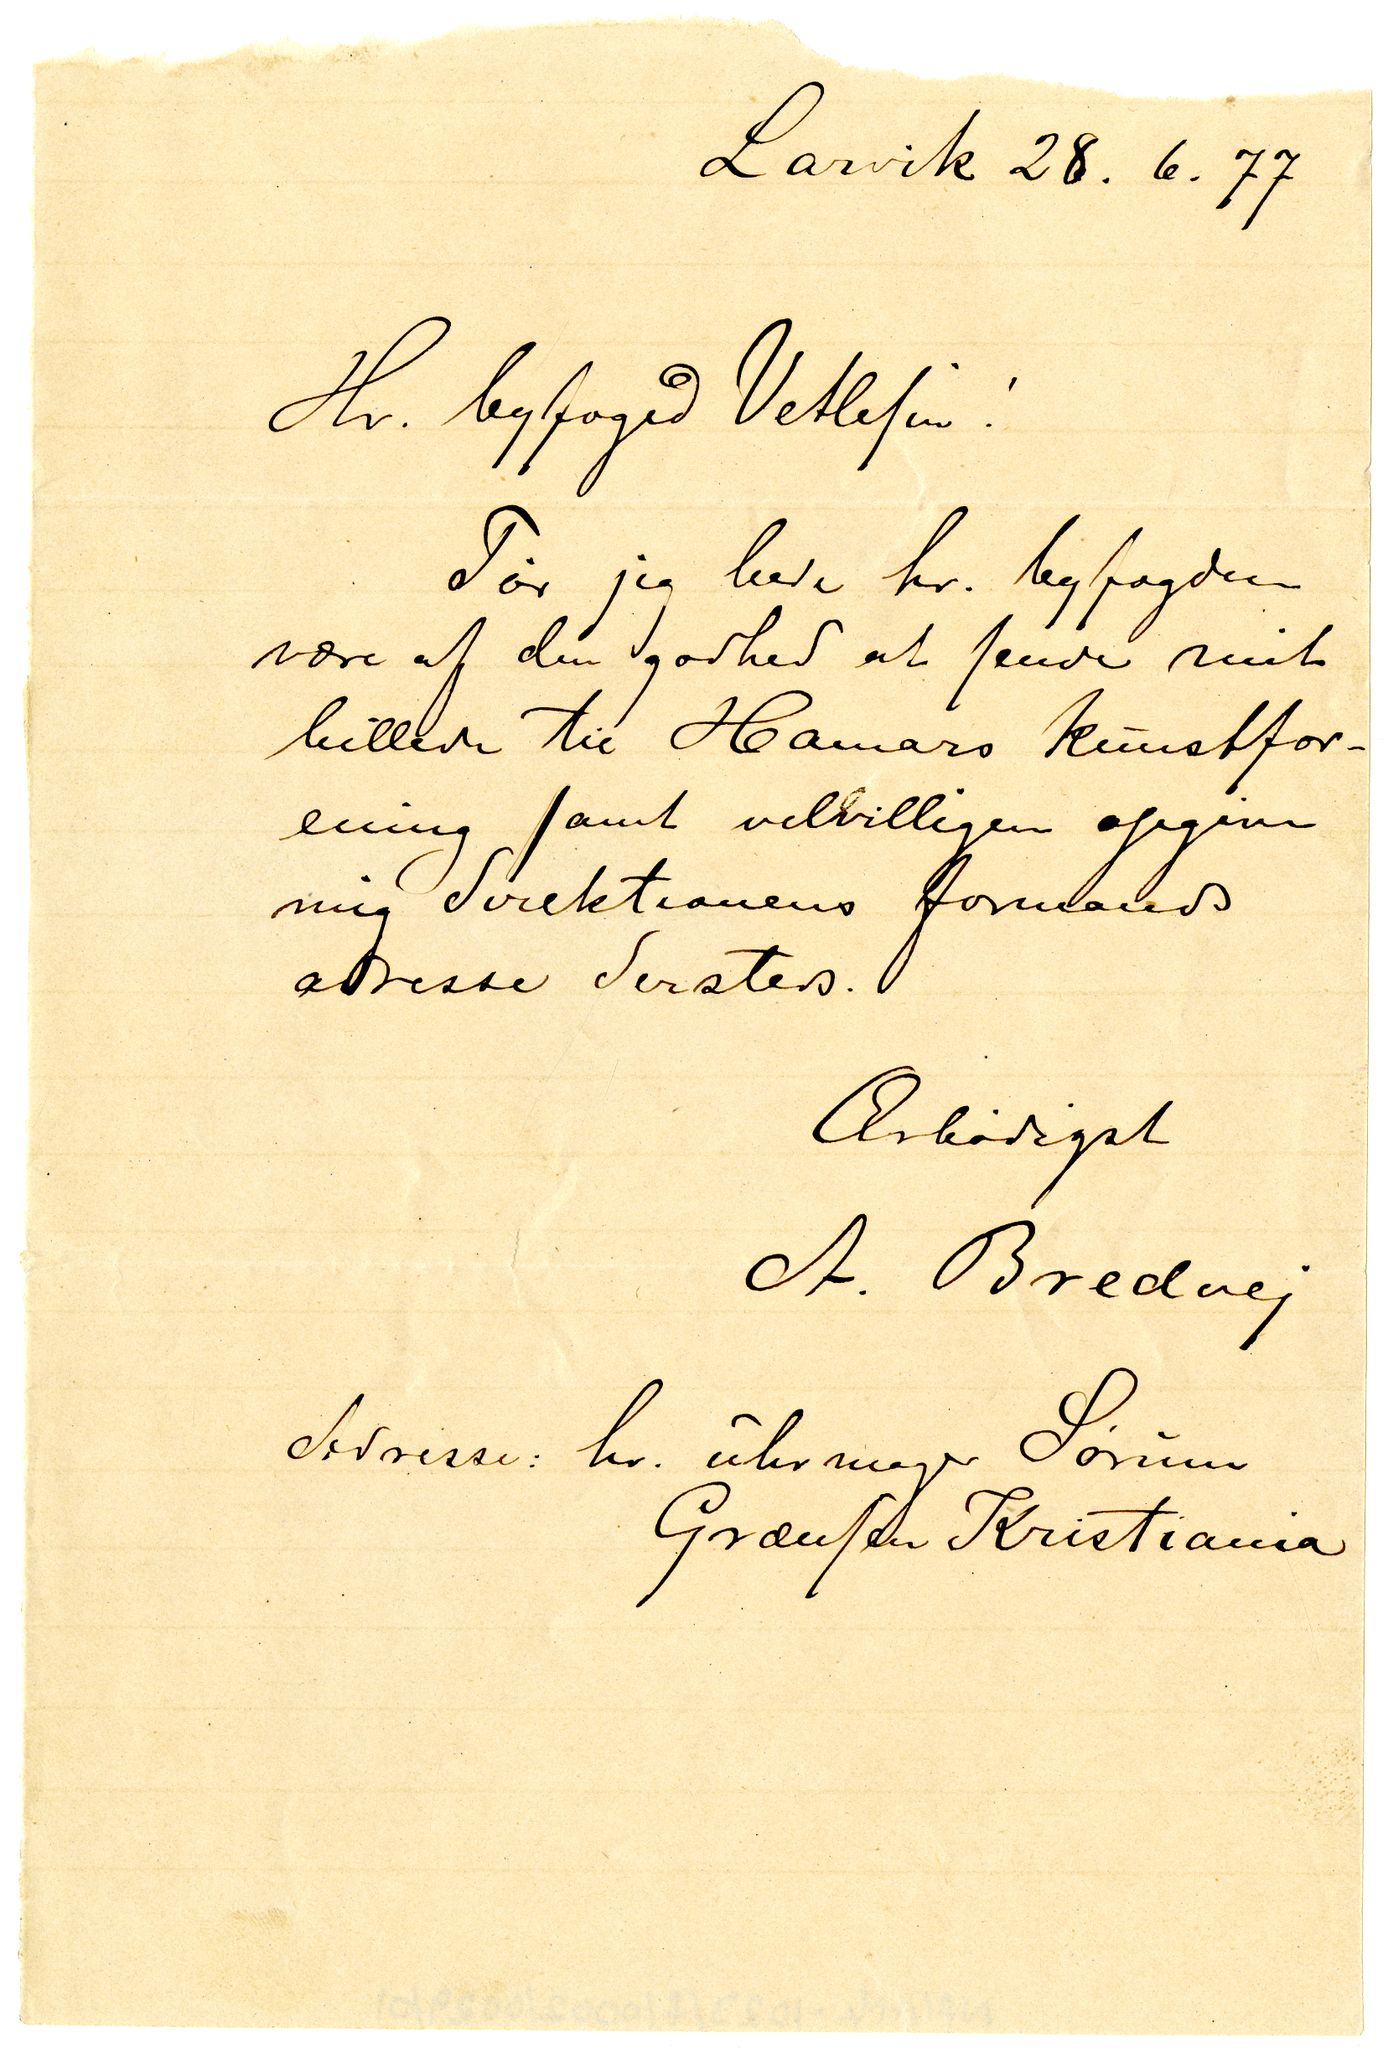 Larvik 28. 6. 77
Hr. byfoged Vetlesen!
Tör jeg bede hr. byfogden
være af den godhed at sende mit
billede til Hamars kunstfor-
ening samt velvilligen opgive
mig direktionens formands
adresse dersteds.
Ærbödigst
A. Bredvej
Adresse: hr. uhrmager Sörum
Grænsen Kristiania